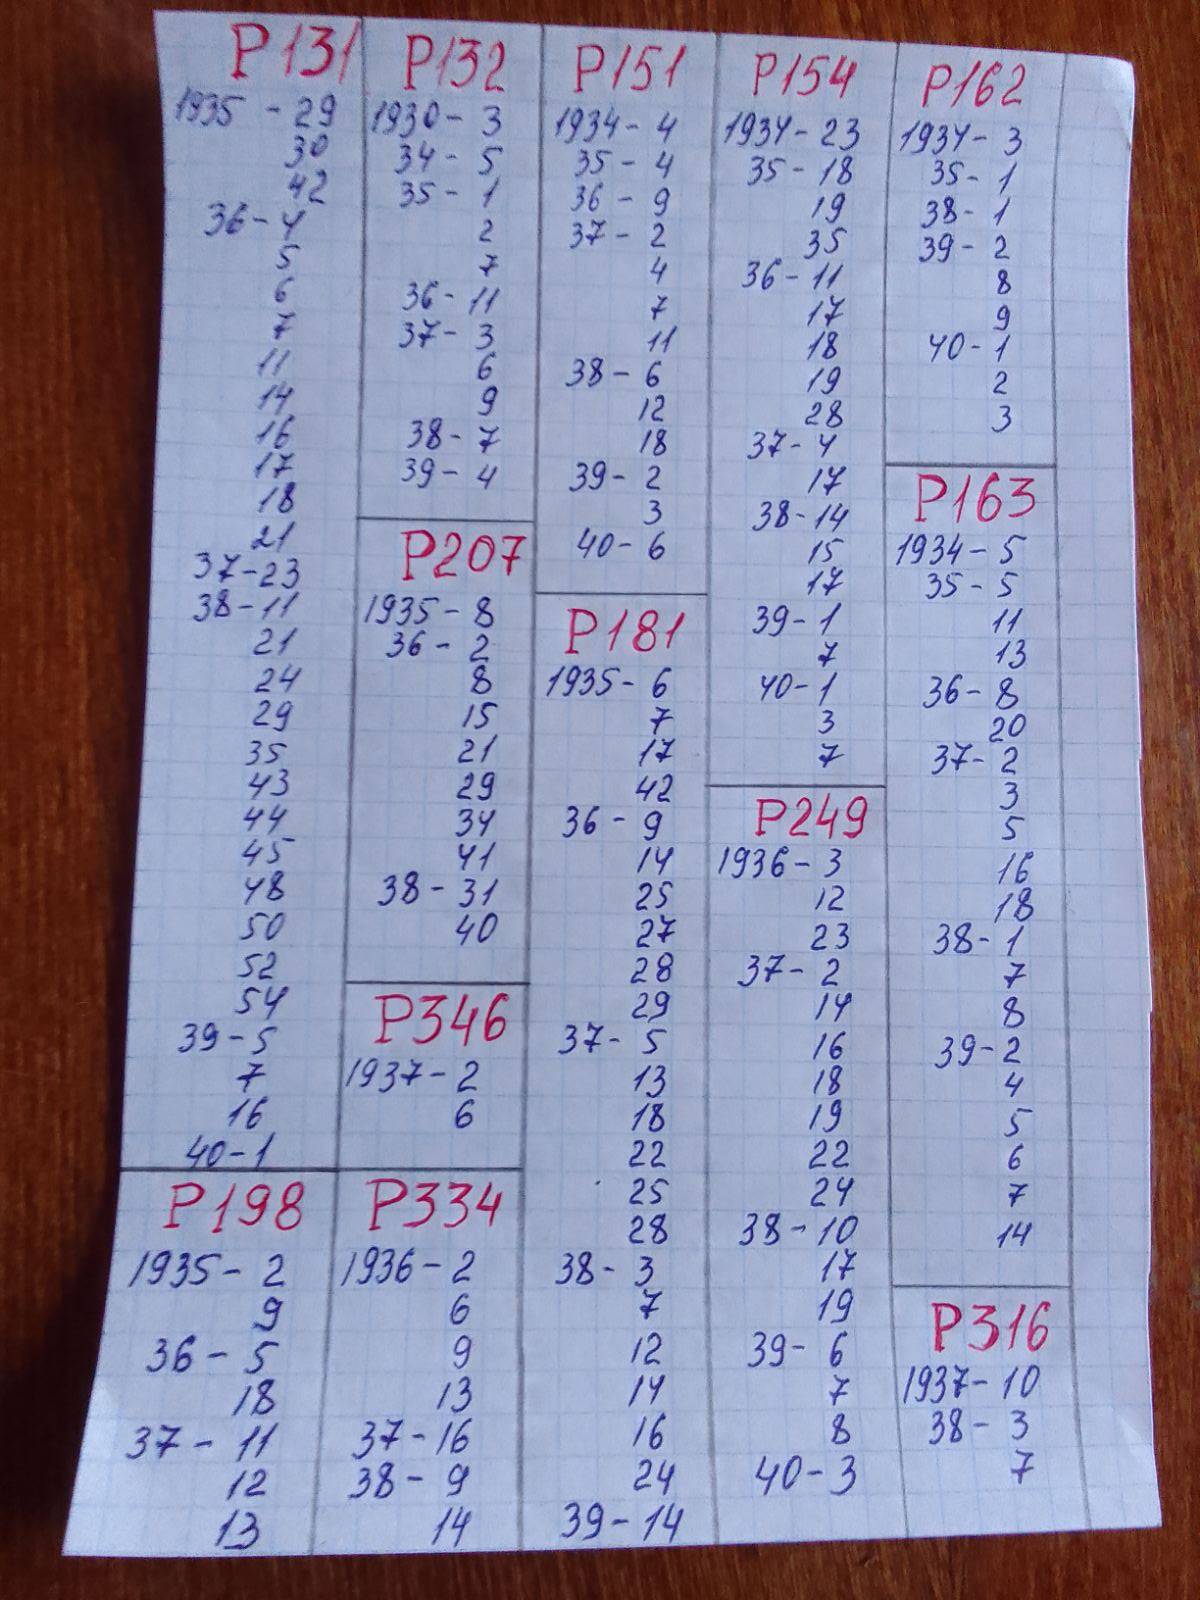 P131
1935 - 29
30
42
36 - 4
5
6
7
11
14
16
17
18
21
37 - 23
38 - 11
21
24
29
35
43
44
45
48
50
52
54
39 - 5
7
16
40 - 1
P198
1935 - 2
9
36 - 5
18
37 - 11
12
13
P132
1930 - 3
34 - 5
35 - 1
2
7
36 - 11
37 - 3
6
9
38 - 7
39 - 4
P207
1935 - 8
36 - 2
8
15
21
29
34
41
38 - 31
40
P346
1937 - 2
6
P334
1936 - 2
6
9
13
37 - 16
38 - 9
14
P151
1934 - 4
35 - 4
36 - 9
37 - 2
4
7
11
38 - 6
12
18
39 - 2
3
40 - 6
P181
1935 - 6
7
17
42
36 - 9
14
25
27
28
29
37 - 5
13
18
22
25
28
38 - 3
7
12
14
16
24
39 - 14
P154
1934 - 23
35 - 18
19
35
36 - 11
17
18
19
28
37 - 4
17
38 - 14
15
17
39 - 1
7
40 - 1
3
7
P249
1936 - 3
12
23
37 - 2
14
16
18
19
22
24
38 - 10
17
19
39 - 6
7
8
40 - 3
P162
1934 - 3
35 - 1
38 - 1
39 - 2
8
9
40 - 1
2
3
P163
1934 - 5
35 - 5
11
13
36 - 8
20
37 - 2
3
5
16
18
38 - 1
7
8
39 - 2
4
5
6
7
14
P316
1937 - 10
38 - 3
7